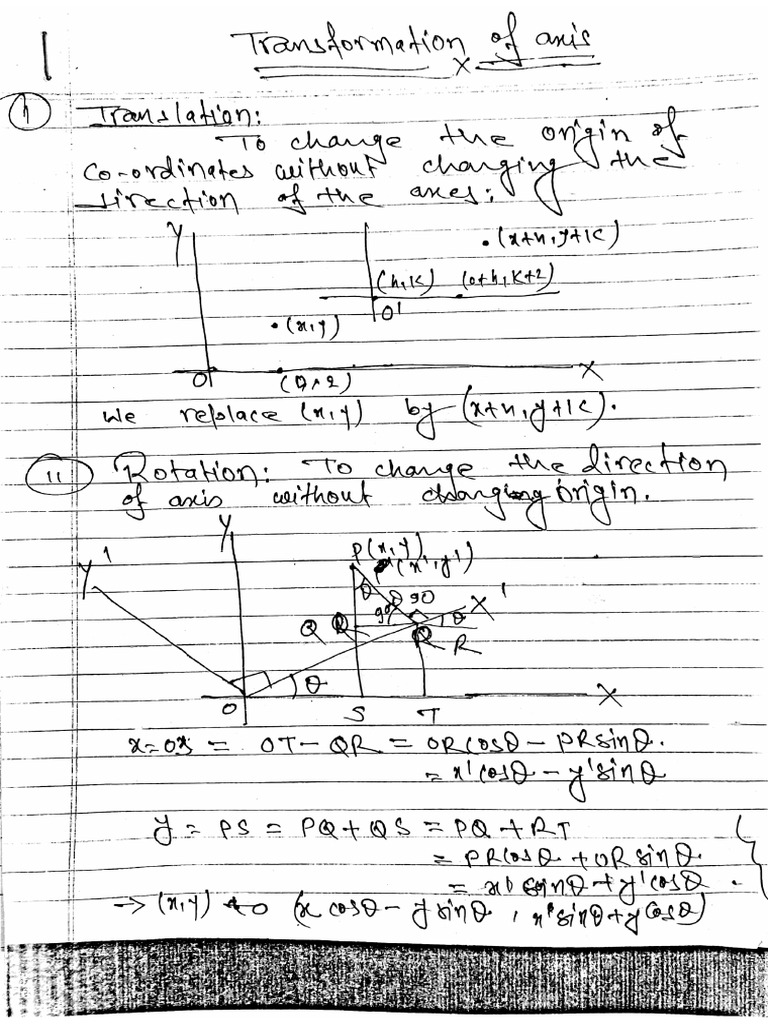 1
Transformation of axis
x
(i) Translation:
To change the origin of
co-ordinates without changing the
direction of the axes:
Y
.(x+h, y+k)
(h,k) (0+h, k+2)
O'
.(x,y)
O
X
(0,2)
we replace (x,y) by (x+h, y+k).
(ii) Rotation: To change the direction
of axis without changing origin.
Y
P(x,y)
Y'
(x',y')
θ
θ 90
X'
90
θ
Q
R
θ
O
S
T
X
x = OS = OT - QR = OR cosθ - PR sinθ.
= x' cosθ - y' sinθ
y = PS = PQ + QS = PQ + RT
= PR cosθ + OR sinθ.
= x' sinθ + y' cosθ.
→ (x,y) to (x cosθ - y sinθ, x' sinθ + y cosθ)